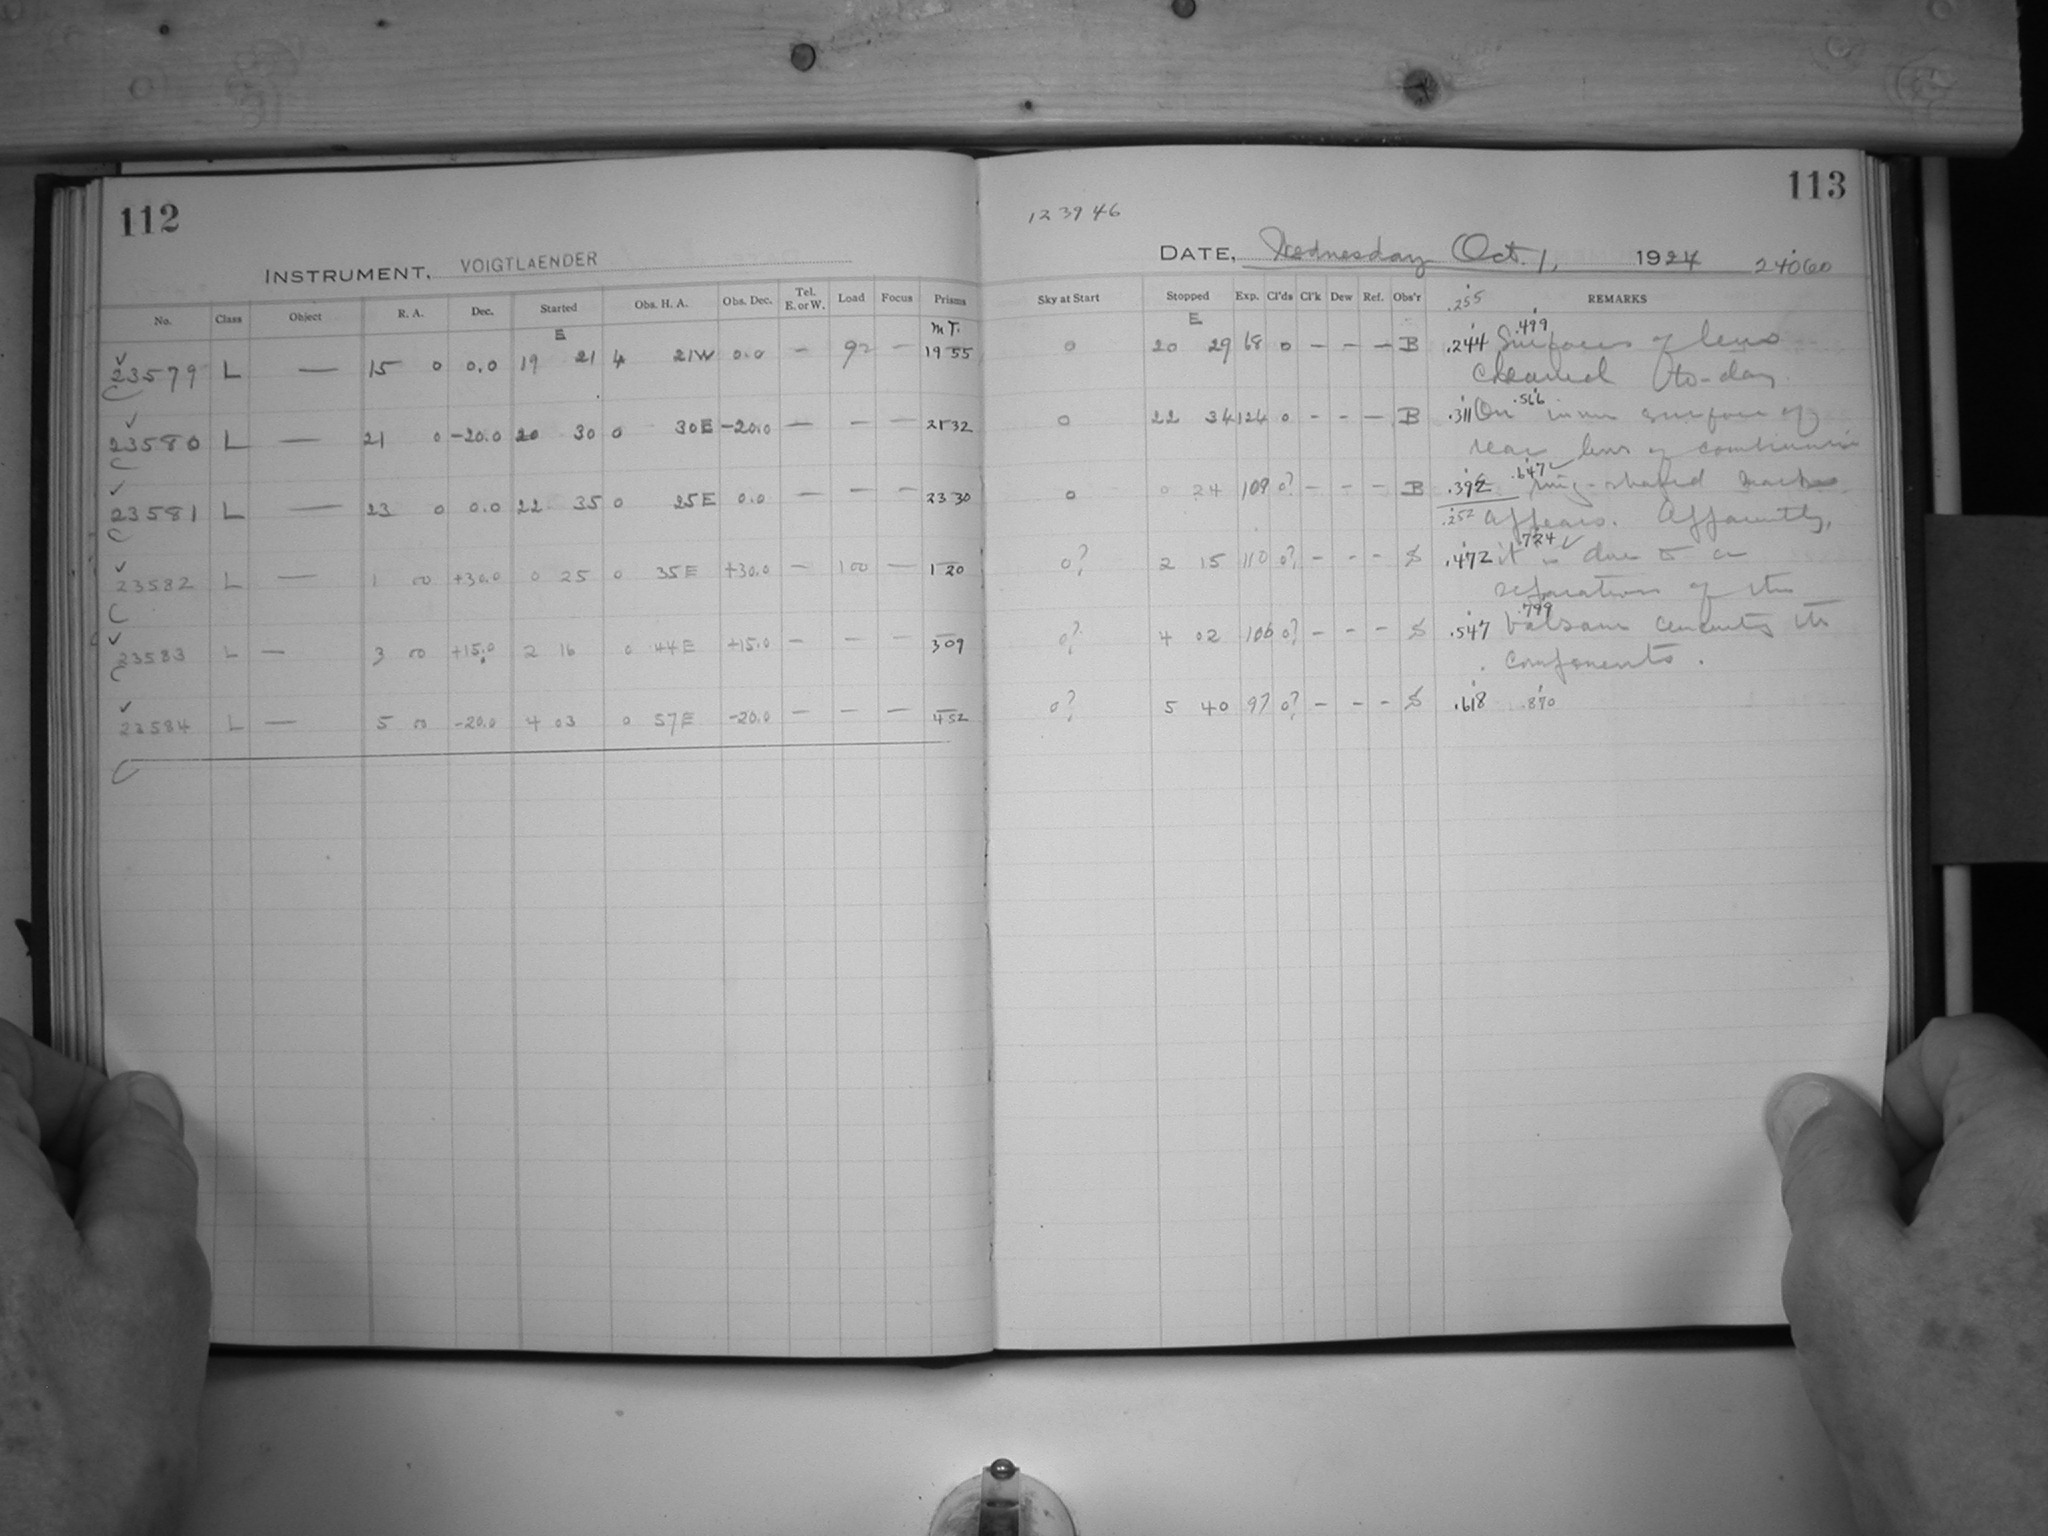 112
INSTRUMENT, VOIGTLAENDER
No. Class Object R. A. Dec. Started Obs. H. A. Obs. Dec. Tel. E. or W. Load Focus Prisms
E M T.
23579 L — 15 0 0.0 19 21 4 21W 0.0 — 92 — 19 55
23580 L — 21 0 -20.0 20 30 0 30E -20.0 — — — 21 32
23581 L — 23 0 0.0 22 35 0 25E 0.0 — — — 23 30
23582 L — 1 00 +30.0 0 25 0 35E +30.0 — 100 — 1 20
23583 L — 3 00 +15.0 2 16 0 44E +15.0 — — — 3 09
23584 L — 5 00 -20.0 4 03 0 57E -20.0 — — — 4 52
113
123946
DATE, Wednesday Oct. 1, 1924 24060
Sky at Start Stopped Exp. Cl'ds Cl'k Dew Ref. Obs'r REMARKS
E .255
.499
0 20 29 68 0 — — — B .244 Surfaces of lens
cleaned to-day.
.566
0 22 34 124 0 — — — B .311 On inner surface of
rear lens of combination
.647
0 0 24 109 0? — — — B .392 ring-shaped marks
.252 appears. Apparently,
.724
0? 2 15 110 0? — — — S .472 it is due to a
separation of the
.799
0? 4 02 106 0? — — — S .547 balsam cementing its
components.
0? 5 40 97 0? — — — S .618 .870